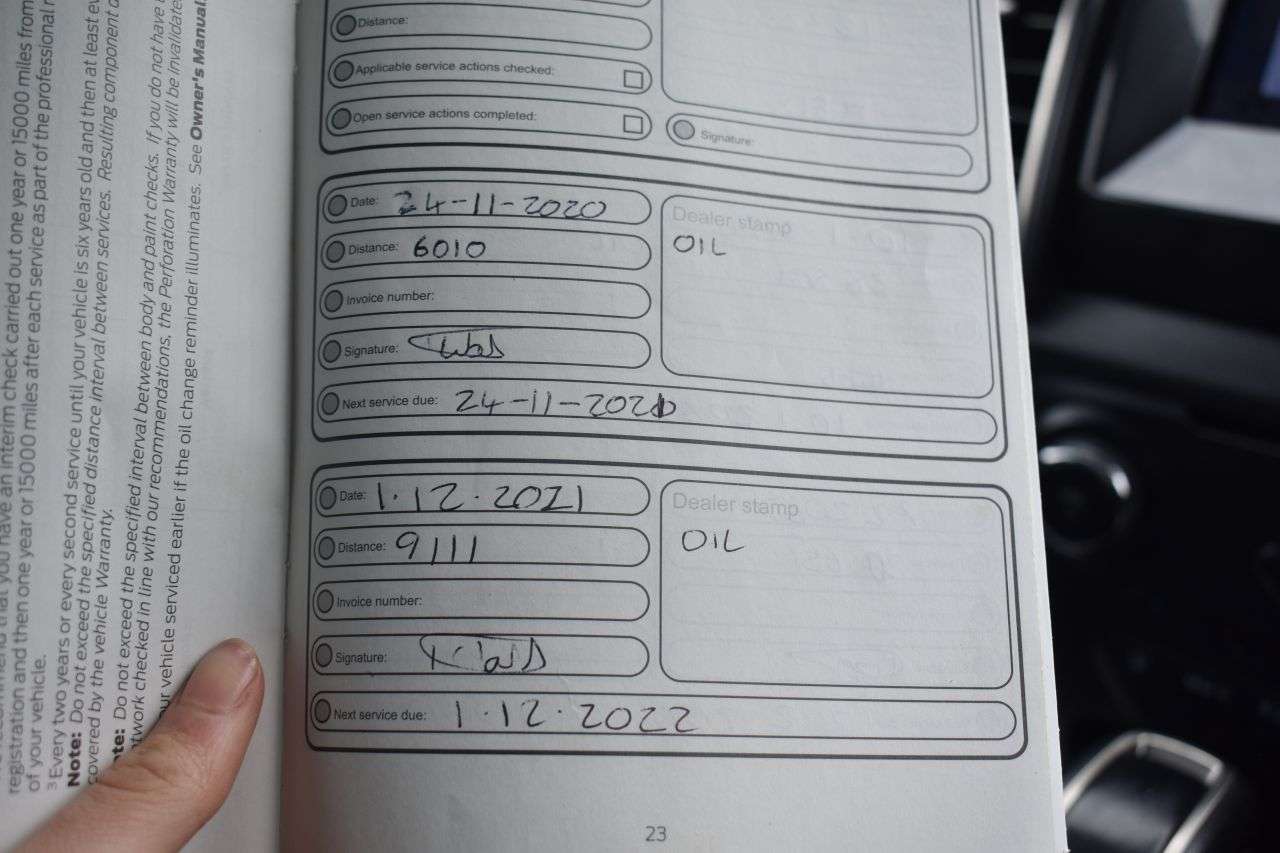 registration and then one year or 15000 miles after each service as part of the professional
of your vehicle.
3 Every two years or every second service until your vehicle is six years old and then at least
Note: Do not exceed the specified distance interval between services. Resulting component
covered by the vehicle Warranty.
Do not exceed the specified interval between body and paint checks. If you do not have
checked in line with our recommendations, the Perforation Warranty will be invalidate
vehicle serviced earlier if the oil change reminder illuminates. See Owner's Manual
you have an interim check carried out one year or 15000 miles from
Distance:
Applicable service actions checked:
Open service actions completed:
Signature:
Date: 24-11-2020
Distance: 6010
Invoice number:
Signature:
Next service due: 24-11-2021
Dealer stamp
OIL
Date: 1.12.2021
Distance: 9111
Invoice number:
Signature:
Next service due: 1.12.2022
Dealer stamp
OIL
23